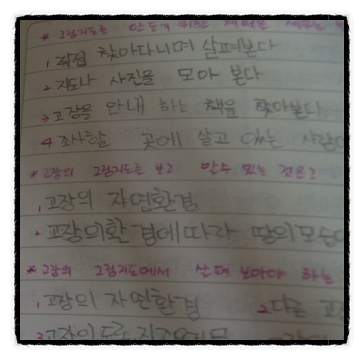 * 그림지도를 만들기 위한
1, 직접 찾아다니며 살펴본다
2 지도나 사진을 모아 본다
3 고장을 안내 하는 책을 찾아본다
4 조사할 곳에 살고 있는 사람
* 고장의 그림지도를 보고 알수 있는 것은?
1, 고장의 자연환경
2 고장의환경에따라 땅의모습
* 고장의 그림지도에서 살펴 보아야 하는
1, 고장의 자연환경 2 다른 고
3 고장의